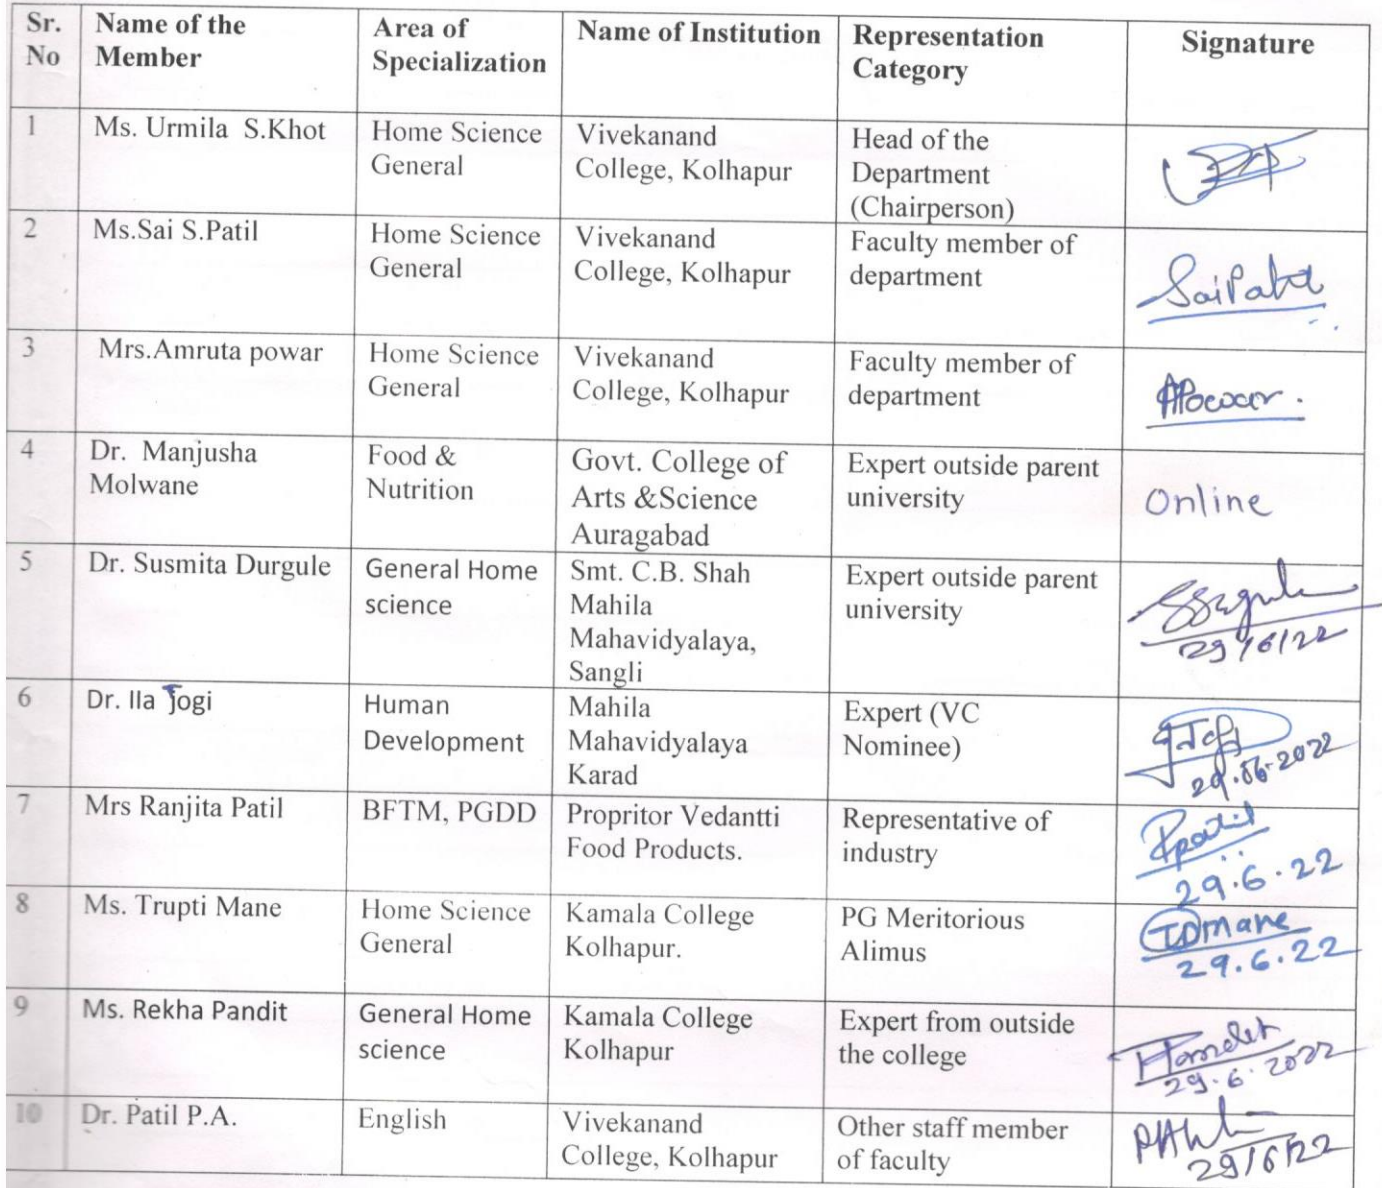 Sr. No
Name of the Member
Area of Specialization
Name of Institution
Representation Category
Signature
1
Ms. Urmila S.Khot
Home Science
General
Vivekanand
College, Kolhapur
Head of the
Department
(Chairperson)
2
Ms.Sai S.Patil
Home Science
General
Vivekanand
College, Kolhapur
Faculty member of
department
SaiPatil
3
Mrs.Amruta powar
Home Science
General
Vivekanand
College, Kolhapur
Faculty member of
department
APowar.
4
Dr. Manjusha
Molwane
Food &
Nutrition
Govt. College of
Arts &Science
Auragabad
Expert outside parent
university
Online
5
Dr. Susmita Durgule
General Home
science
Smt. C.B. Shah
Mahila
Mahavidyalaya,
Sangli
Expert outside parent
university
29/6/22
6
Dr. Ila Jogi
Human
Development
Mahila
Mahavidyalaya
Karad
Expert (VC
Nominee)
29.06.2022
7
Mrs Ranjita Patil
BFTM, PGDD
Propritor Vedantti
Food Products.
Representative of
industry
Rpatil
29.6.22
8
Ms. Trupti Mane
Home Science
General
Kamala College
Kolhapur.
PG Meritorious
Alimus
TDmane
29.6.22
9
Ms. Rekha Pandit
General Home
science
Kamala College
Kolhapur
Expert from outside
the college
29.6.2022
10
Dr. Patil P.A.
English
Vivekanand
College, Kolhapur
Other staff member
of faculty
29/6/22